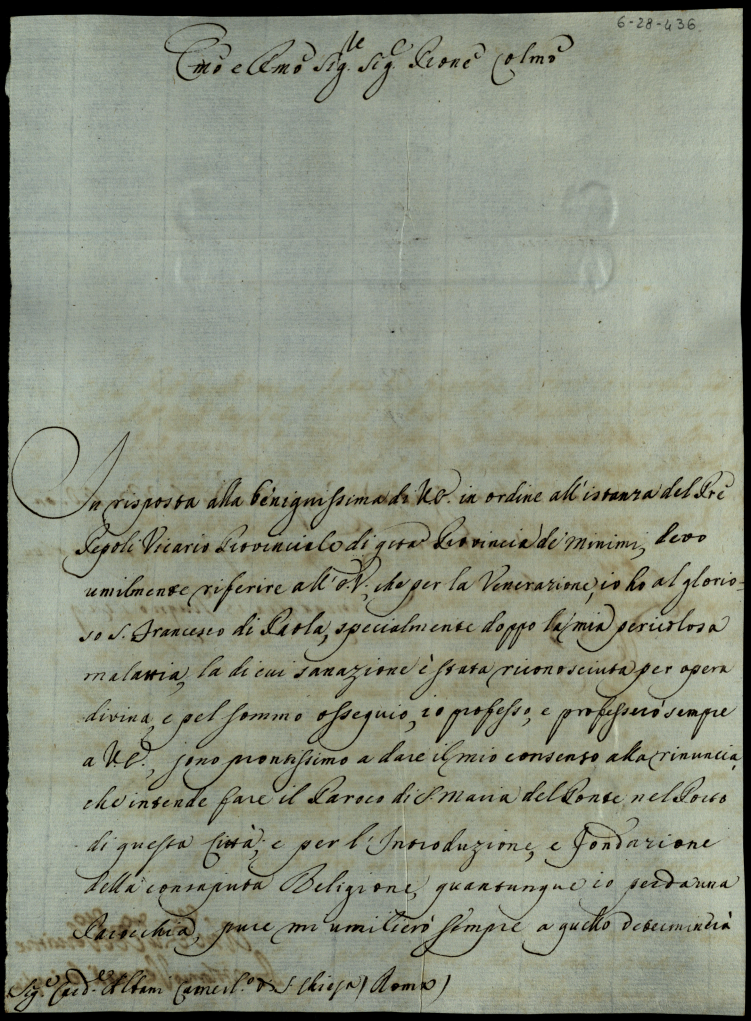 6-28-436
Emo e Rmo Sig.re Sig.e Prone Colmo
In risposta alla benignissima di V.E. in ordine all'istanza del Pre
Pepoli Vicario Provinciale di qsta Provincia de' Minimi, devo
umilmente riferire all'E.V., che per la Venerazione, io ho al glorio=
so S. Francesco di Paola, specialmente doppo la mia pericolosa
malattia, la di cui sanazione è stata riconosciuta per opera
divina, e pel sommo ossequio, io professo, e professerò sempre
a V.E., sono prontissimo a dare il mio consenso alla rinuncia,
che intende fare il Paroco di S. Maria del Ponte nel Porto
di questa Città, e per l'Introduzione, e Fondazione
della consaputa Religione, quantunque io perda una
Parocchia, pure mi umilierò sempre a quello determinerà
Sig.e Card.le Albani Camerl.o di S. Chiesa (Roma)